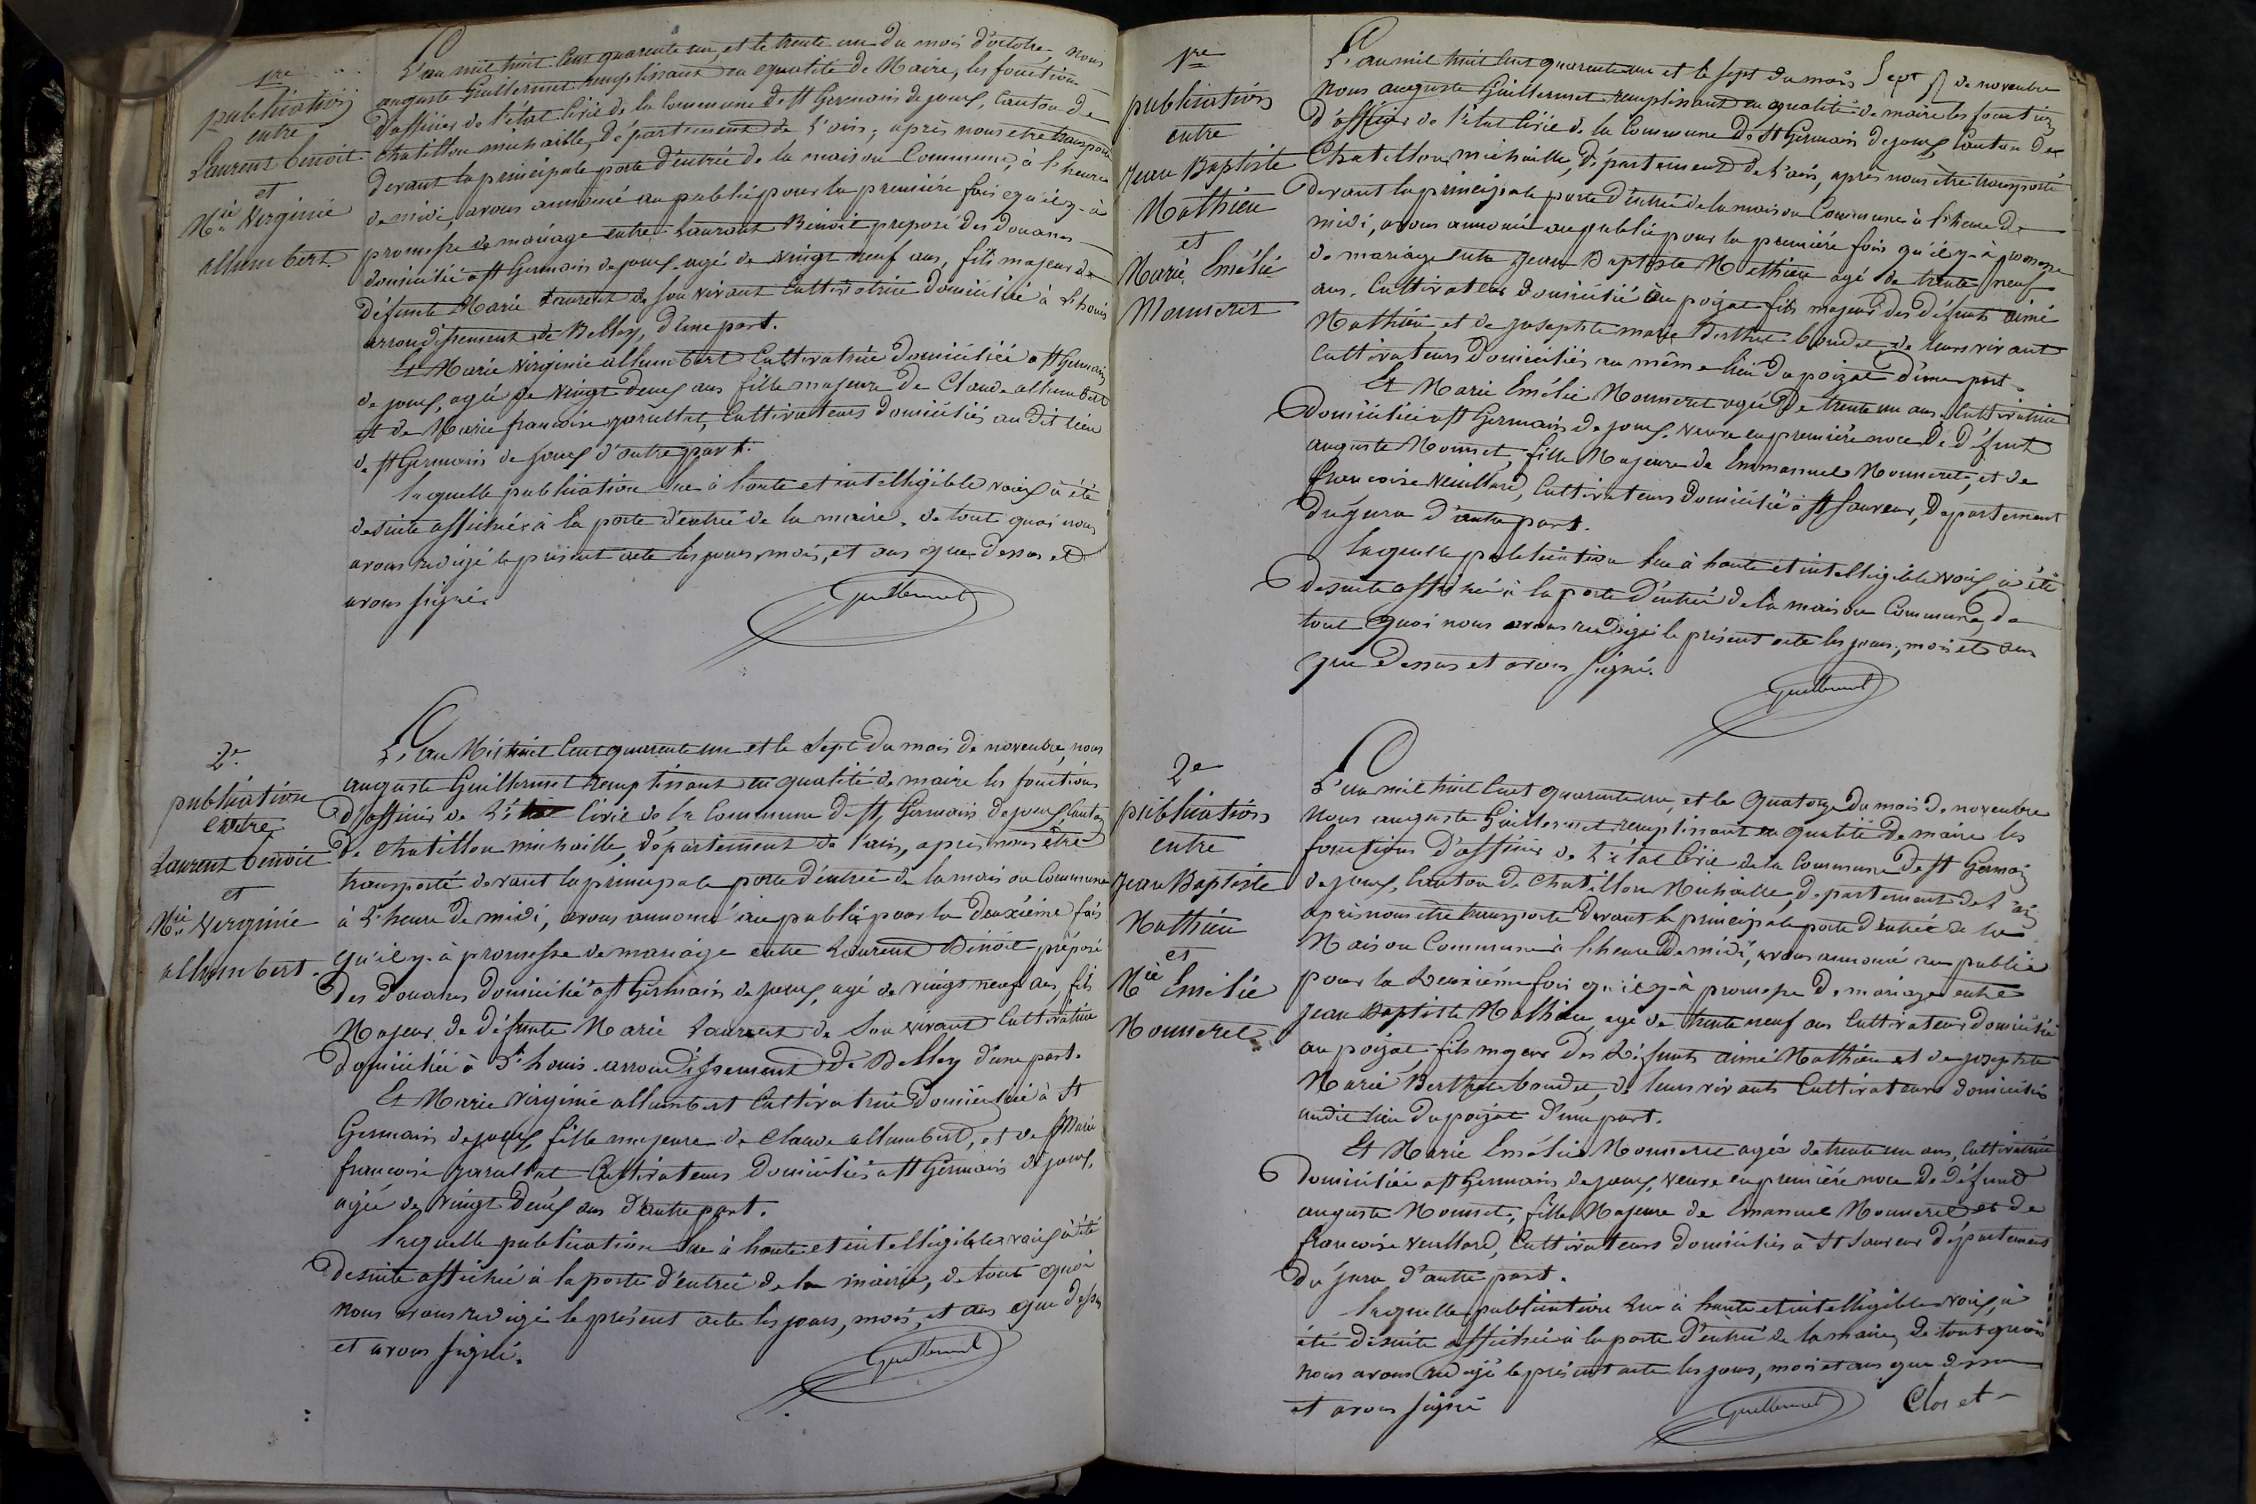 1re
publication
entre
Laurent Benoit
et
Mie Virginie
allumbert.
L'an mil huit cent quarante un, et le trente un du mois d'octobre, nous
auguste Guillermet remplissant en qualité de Maire, les fonctions
d'officier de l'état Civil de la Commune de St Germain de joux, Canton de
Chatillon michaille, département de l'ain, après nous etre transporté
devant la principale porte d'entrée de la maison Commune, à l'heure
de midi, avons annoncé au public pour la première fois qu'il y-à
promesse de mariage entre Laurent Benoit préposé des douanes
domicilié a St Germain de joux agé de vingt neuf ans, fils majeur de
défunte Marie Laurent de son vivant Cultivatrice domiciliée à
arrondissement de Belley, d'une part.
Et Marie virginie allumbert Cultivatrice domiciliée a St Germain
de joux, agée de vingt deux ans fille majeure de Claude allumbert
et de Marie francoise, Cultivateurs domiciliés au dit lieu
de St Germain de joux d'autre part.
laquelle publication lue à haute et intelligible voix à été
de suite affichée à la porte d'entrée de la mairie, de tout quoi nous
avons redigé le présent acte les jours, mois, et ans que dessus et
avons signé.
Guillermet
2e
publication
entre
Laurent Benoit
et
Mie Verginie
allumbert.
L'an Mil huit Cent quarante un et le sept du mois de novembre, nous
auguste Guillermet remplissant en qualité de maire les fonctions
d'officier de l'état Civil de la Commune de St Germain de joux, Canton
de Chatillon michaille, département de l'ain, après nous être
transporté devant la principale porte d'entrée de la maison Commune
à l'heure de midi, avons annoncé au public pour la deuxième fois
qu'il y-à promesse de mariage entre Laurent Benoit préposé
des douanes domicilié a St Germain de joux, agé de vingt neuf ans, fils
Majeur de défunte Marie Laurent de son vivant Cultivatrice
domiciliée à arrondissement de Belley d'une part.
Et Marie virginie allumbert Cultivatrice domiciliée à St
Germain de joux, fille majeure de Claude allumbert, et de Marie
francoise Cultivateurs domiciliés a St Germain de joux,
agée de vingt deux ans d'autre part.
laquelle publication lue à haute et intelligible voix à été
de suite affichée à la porte d'entrée de la mairie, de tout quoi
nous avons redigé le présent acte les jours, mois, et ans que dessus
et avons signé.
Guillermet
1re
publication
entre
Jean Baptiste
Mathieu
et
Marie Emélie
Monneret
L'an mil huit Cent quarante un et le sept du mois Sept de novembre
Nous auguste Guillermet remplissant en qualité de maire les fonctions
d'officier de l'état Civil de la Commune de St Germain de joux Canton de
Chatillon michaille, département de l'ain, après nous etre transporté
devant la principale porte d'entrée de la maison Commune à l'heure de
midi, avons annoncé au public pour la première fois qu'il y-à promesse
de mariage entre Jean Baptiste Mathieu agé de trente neuf
ans, Cultivateur domicilié au poizat fils majeur des défunts aimé
Mathieu et de josephte marie Berthet-boudet de leurs vivant
Cultivateurs domiciliés au même lieu du poizat d'une part.
Et Marie Emélie Monneret agée de trente un ans Cultivatrice
domiciliée a St Germain de joux, veuve en première noce de défunt
auguste fille Majeure de Emmanuel Monneret, et de
francoise vuillard, Cultivateurs domiciliés a St Sauveur, département
du jura d'autre part.
laquelle publication lue à haute et intelligible voix à été
de suite affichée à la porte d'entrée de la maison Commune, de
tout quoi nous avons redigé le présent acte les jours, mois et ans
que dessus et avons signé.
Guillermet
2e
publication
entre
Jean Baptiste
Mathieu
et
Mie Emelie
Monneret
L'an mil huit Cent quarante un, et le quatorze du mois de novembre
Nous auguste Guillermet remplissant en qualité de maire les
fonctions d'officier de l'état Civil de la Commune de St Germain
de joux, Canton de Chatillon Michaille, département de l'ain
après nous etre transporté devant la principale porte d'entrée de la
Maison Commune à l'heure de midi, avons annoncé au public
pour la deuxième fois qu'il y-à promesse de mariage entre
Jean Baptiste Mathieu, agé de trente neuf ans Cultivateur domicilié
au poizat, fils majeur des défunts aimé Mathieu et de josephte
Marie Berthet-boudet, de leurs vivants Cultivateurs domiciliés
au dit lieu du poizat d'une part.
Et Marie Emélie Monneret agée de trente un ans, Cultivatrice
domiciliée a St Germain de joux, veuve en première noce de défunt
auguste fille Majeure de Emanuel Monneret et de
francoise vuillard, Cultivateurs domiciliés à St Sauveur département
du jura d'autre part.
laquelle publication lue à haute et intelligible voix, à
été de suite affichée à la porte d'entrée de la mairie, de tout quoi
nous avons redigé le présent acte les jours, mois et ans que dessus
et avons signé
Guillermet
Clos et